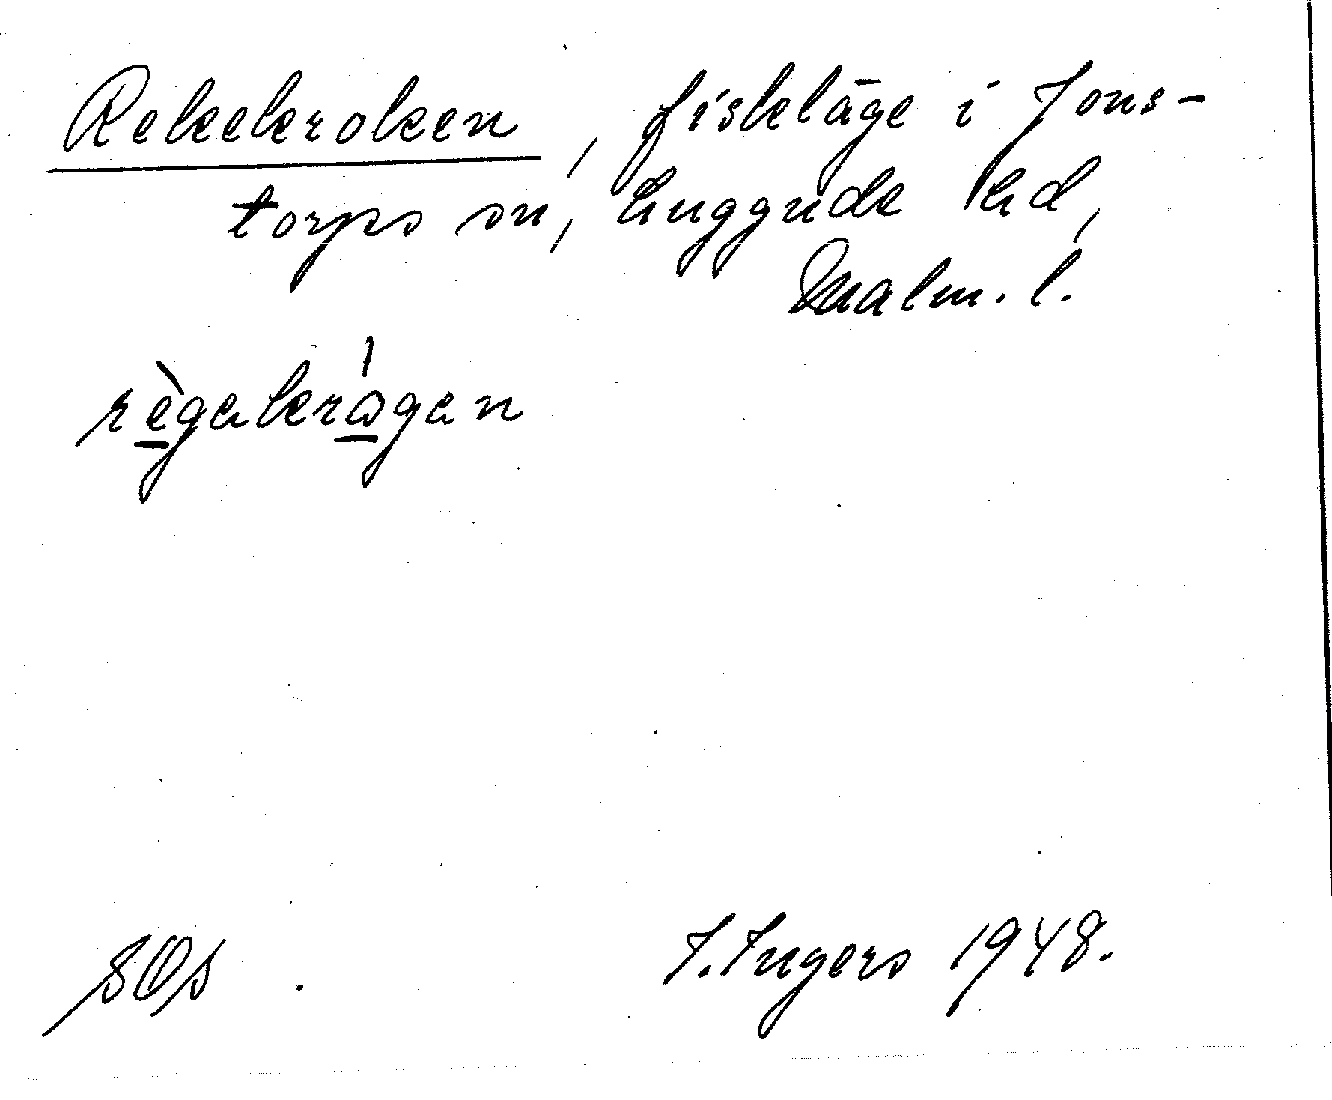 Rekekroken, fiskeläge i Jons-
torps sn, Luggude hd,
Malm. l.
règakrágan
SOS .
I. Ingers 1948.